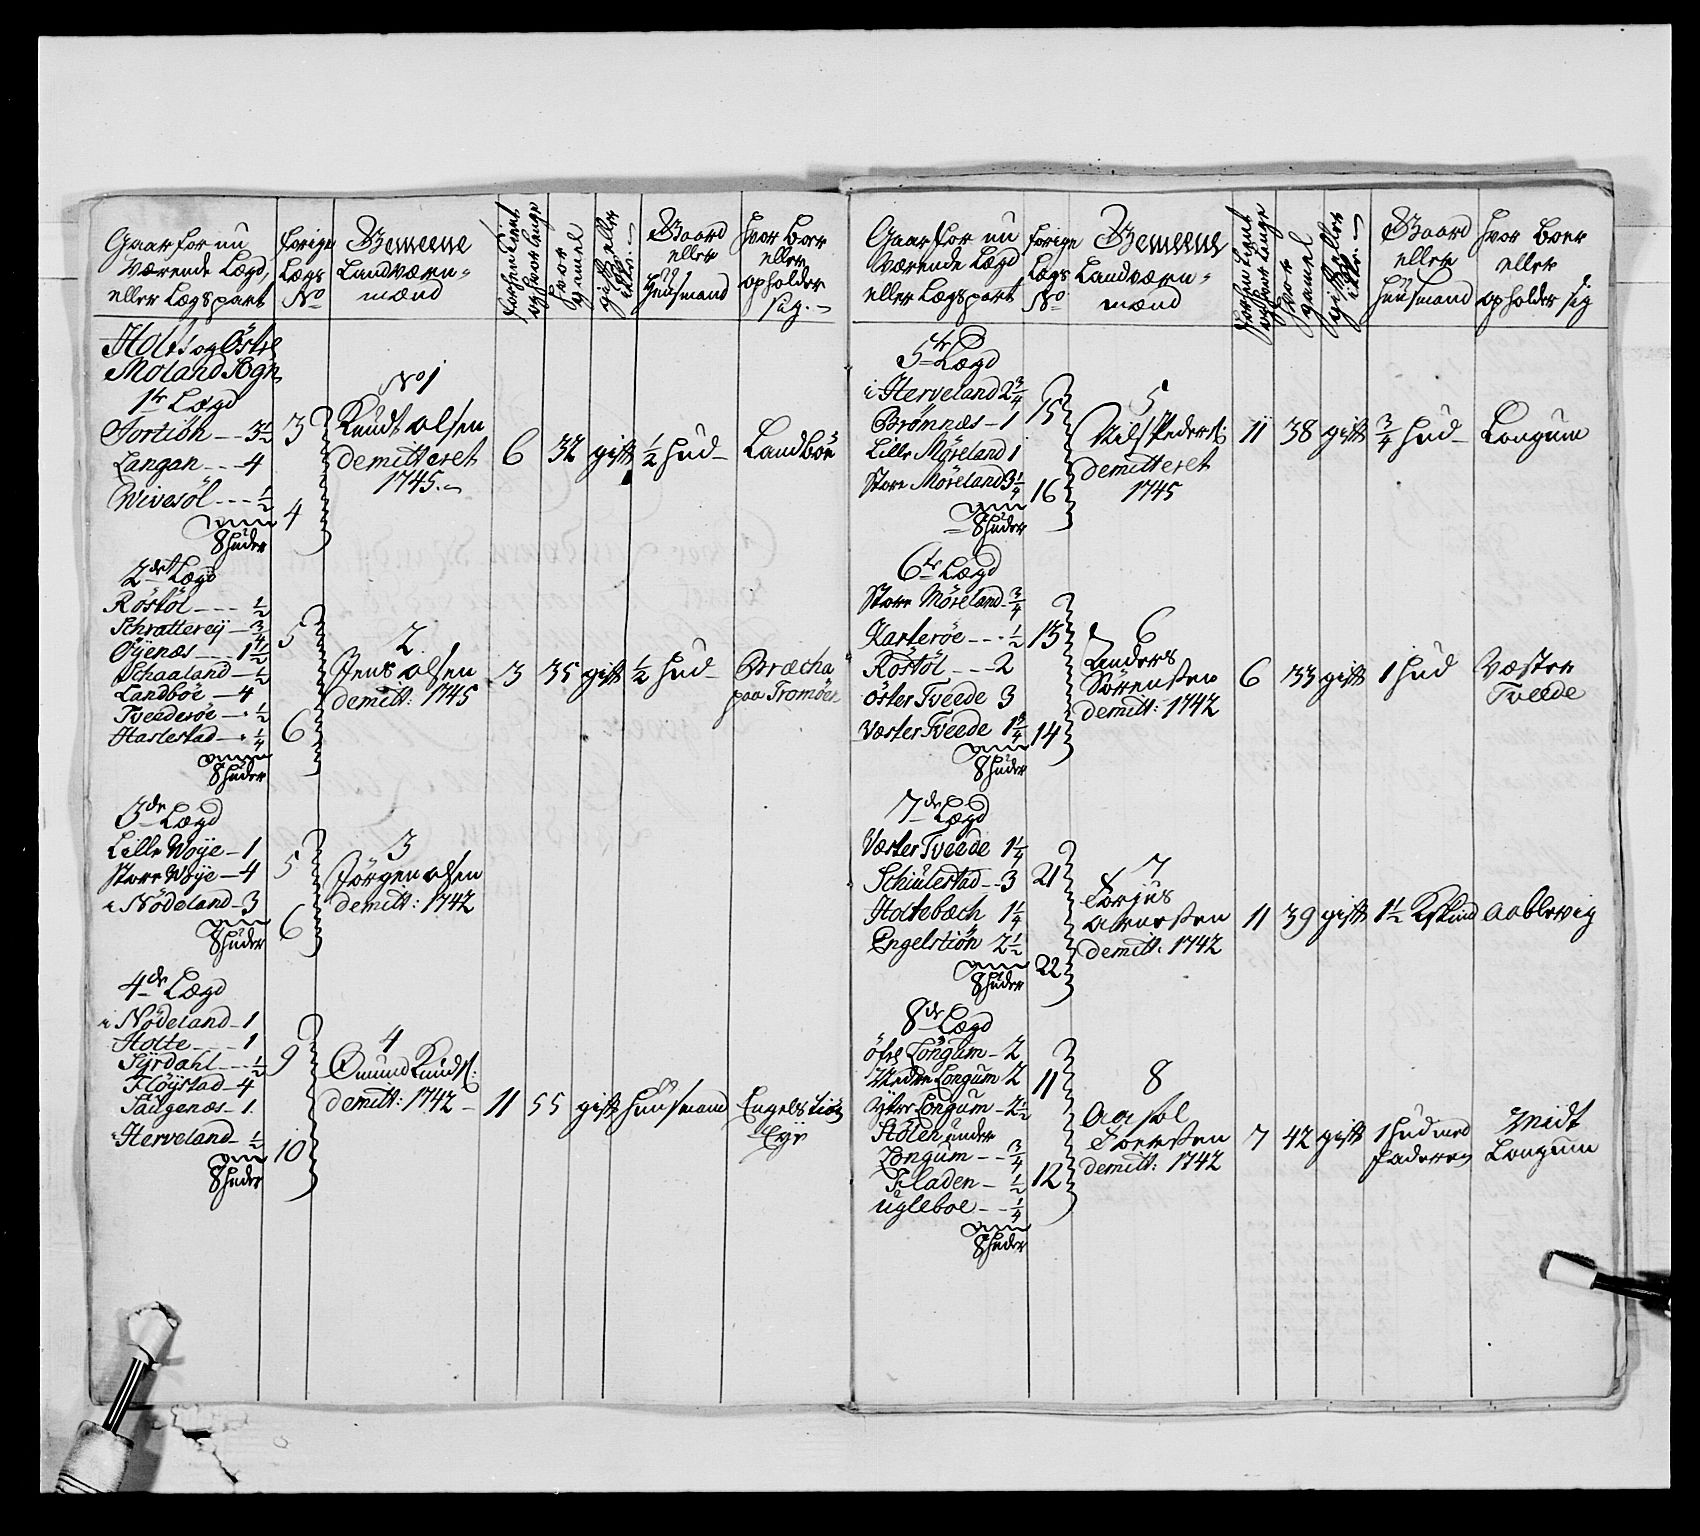 Gaarfor nu
Værende Lægd,
eller Lægspart
forige
Lægs
No
Gemeene
Landværn-
mænd
forhen tient
og hvor lenge
hvor
gamel
gift eller
ikke.
Gaard
eller
Huusmand
hvor boer
eller
opholder
sig.
Holt og Östre
Moland Sogn
1te Lægd
Fortiön - - 3 1/2
Langan - - - 4
Wivesöl - - - 1/2
8 huder
3
4
No 1
Knudt olsen
demitteret
1745.
6
32
gift
1/2 hud
Landböe
2det Lægd
Röstöl - - - - 1/2
Schratterey - 3/4
Öyenæs - - - 1 1/2
Schaaland - 1/2
Landböe - 4
Tveederöe - . 1/2
Haslestad - . 1/4
8 huder
5
6
2
Jens olsen
demitt: 1745
3
35
gift
1/2 hud
Bræcha
paa Tromöen
3de Lægd
Lille Woye - 1
Store Woye - 4
i Nödeland - 3
8 huder
5
6
3
Jörgen olsen
demitt: 1742
4de Lægd
i Nödeland - 1
Holte - - - - 1
Syrdahl - - - 1/2
Flöystad - 4
Saugenæs - 1.
i Herveland - 1/2
8 huder
9
10
4
Omund Knuds:
demitt: 1742
11
55
gift
huusmand
Engelstiön
Eye
Gaarfor nu
Værende Lægd
eller Lægspart
forige
Lægs
No
Gemeene
Landværn-
mænd
forhen tient
og hvor lenge
hvor
gamel
gift eller
ikke.
Gaard
eller
huusmand
hvor boer
eller
opholder sig
5te Lægd
i Herveland 2 3/4
Brömnæs - 1
Lille Möreland 1
Store Möreland 3 1/4
8 huder
15
16
5
Nils Peders:
demitteret
1745
11
38
gift
3/4 hud
Longum
6te Lægd
Store Möreland 3/4
Karteröe - - . 1/2
Röstöl - - - 2
öster Tveede 3
Væster Tveede 1 3/4
8 huder
13
14
6
Anders
Sörensen
demitt: 1742
6
33
gift
1 hud
Væster
Tveede
7de Lægd
Væster Tveede 1 1/4
Schiulestad - - 3
Holtebæch 1 1/4
Engelstiön 2 1/2
8 huder
21
22
7
Torjus
demitt: 1742
11
39
gift
1 1/2 Kskind
Aablevig
8de Lægd
öfre Longum - 2
Nedre Longum 2
Ytre Longum - 2 1/2
Holen under
Longum - - 3/4
Fladen - 1/2
Ugleboe - - 1/4
8 huder
11
12
8
demitt: 1742
7
42
gift
1 hud med
faderen
Midt
Longum